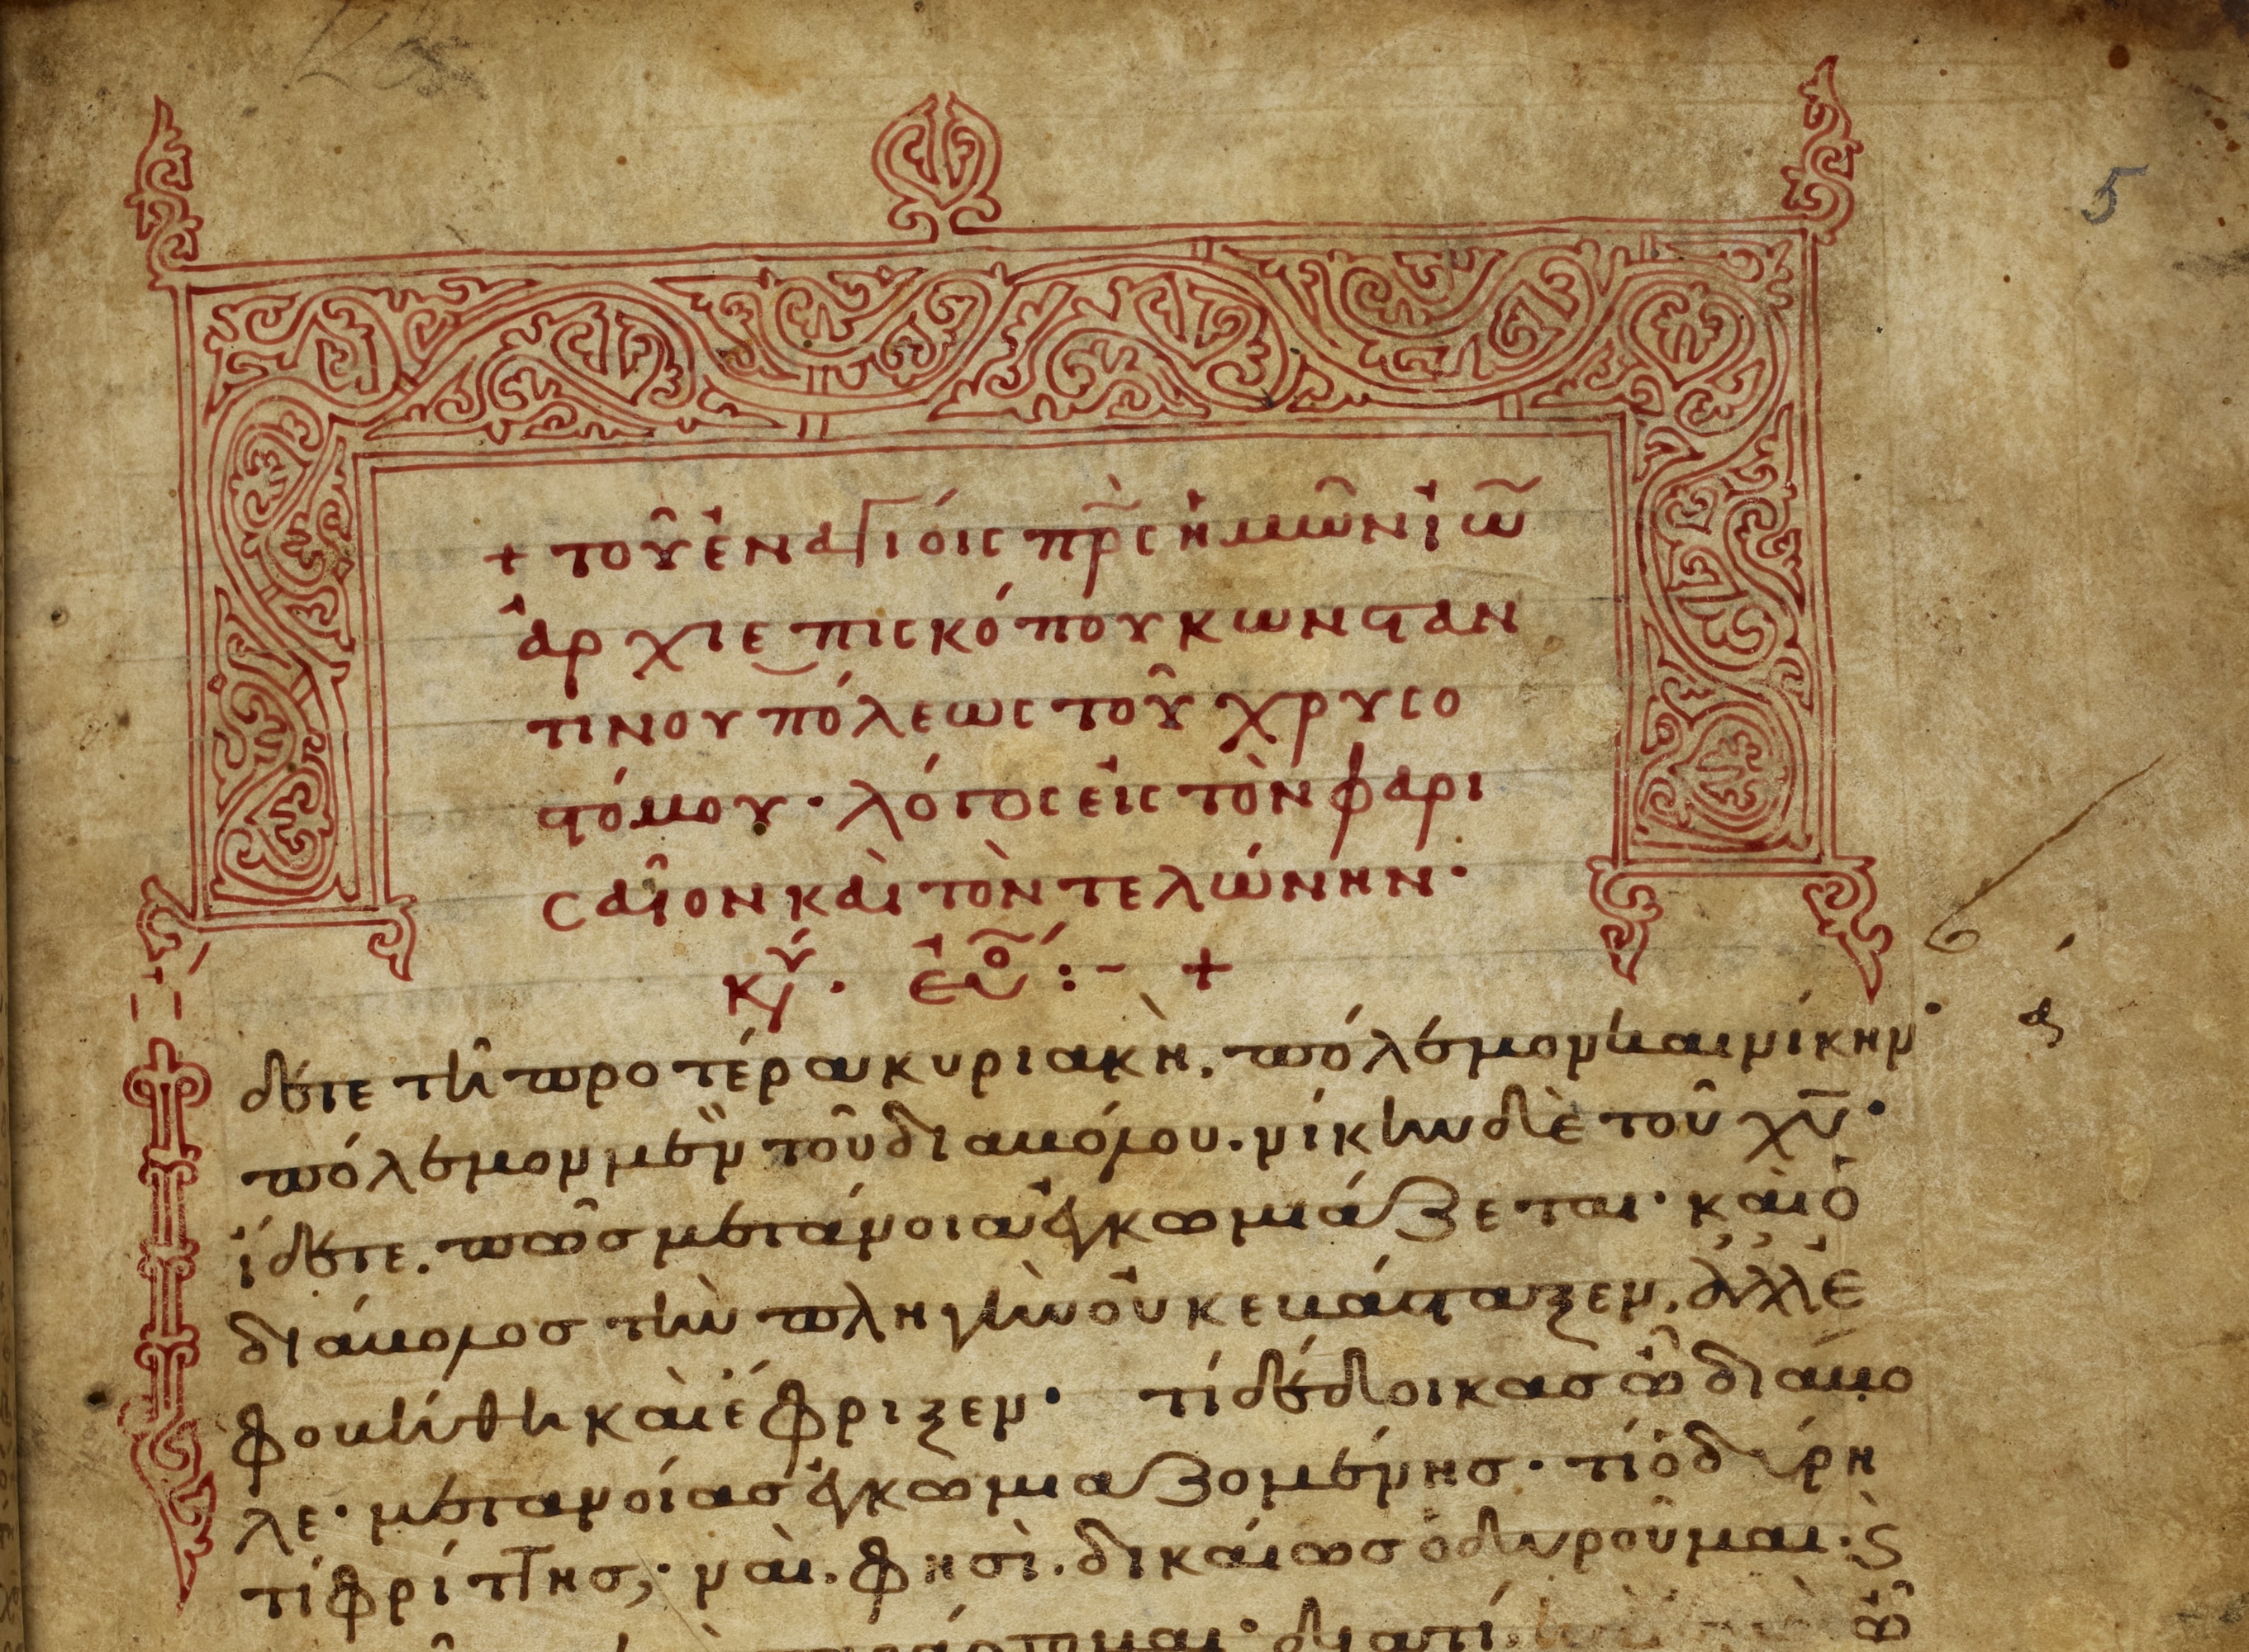 5
+ τοῦ ἐν ἁγίοις πρ̅ς ἡμῶν ἰω̅
ἀρχιεπισκόπου κωνϛαν
τινουπόλεως τοῦ χρυσο
ϛόμου· λόγος εἰς τὸν φαρι
σαῖον καὶ τὸν τελώνην·
κυ. εὐο :- +
δετε τῆ προτέραι κυριακῆ, πόλεμον καὶ νίκην·
πόλεμον μὲν τοῦ διαβόλου. νίκην δὲ τοῦ χυ̅·
ἴδετε. πῶς μετάνοια ἐγκωμιάζεται· καὶ ὁ
διάβολος τὴν πληγὴν οὐκ ἐβάϛαξεν, ἀλλ ἐ
φοβήθη καὶ ἔφριξεν· τί δέδοικας ὦ διάβο
λε· μετανοίας ἐγκωμιαζομένης· τί ὀδύρη
τί φρίττης; ναὶ. φησὶ. δικαίως ὀδυροῦμαι·